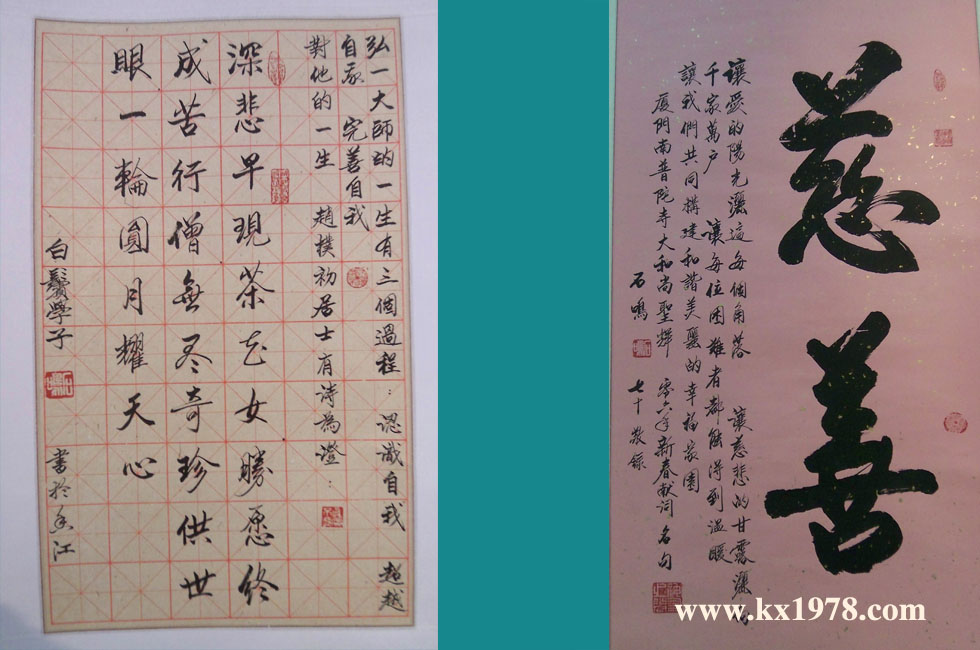 弘一大師的一生有三個過程：認識自我 超越
自我 完善自我
對他的一生 趙樸初居士有诗為證：
深悲早現茶花女勝愿終
成苦行僧無尽奇珍供世
眼一輪圓月耀天心
白鬓學子 書於香江
慈善
讓愛的陽光灑遍每個角落 讓慈悲的甘露灑向
千家萬户 讓每位困難者都能得到温暖
讓我們共同構建和諧美麗的幸福家園
厦門南普陀寺大和尚聖輝 零六年新春献詞名句
石鳴 七十敬錄
www.kx1978.com